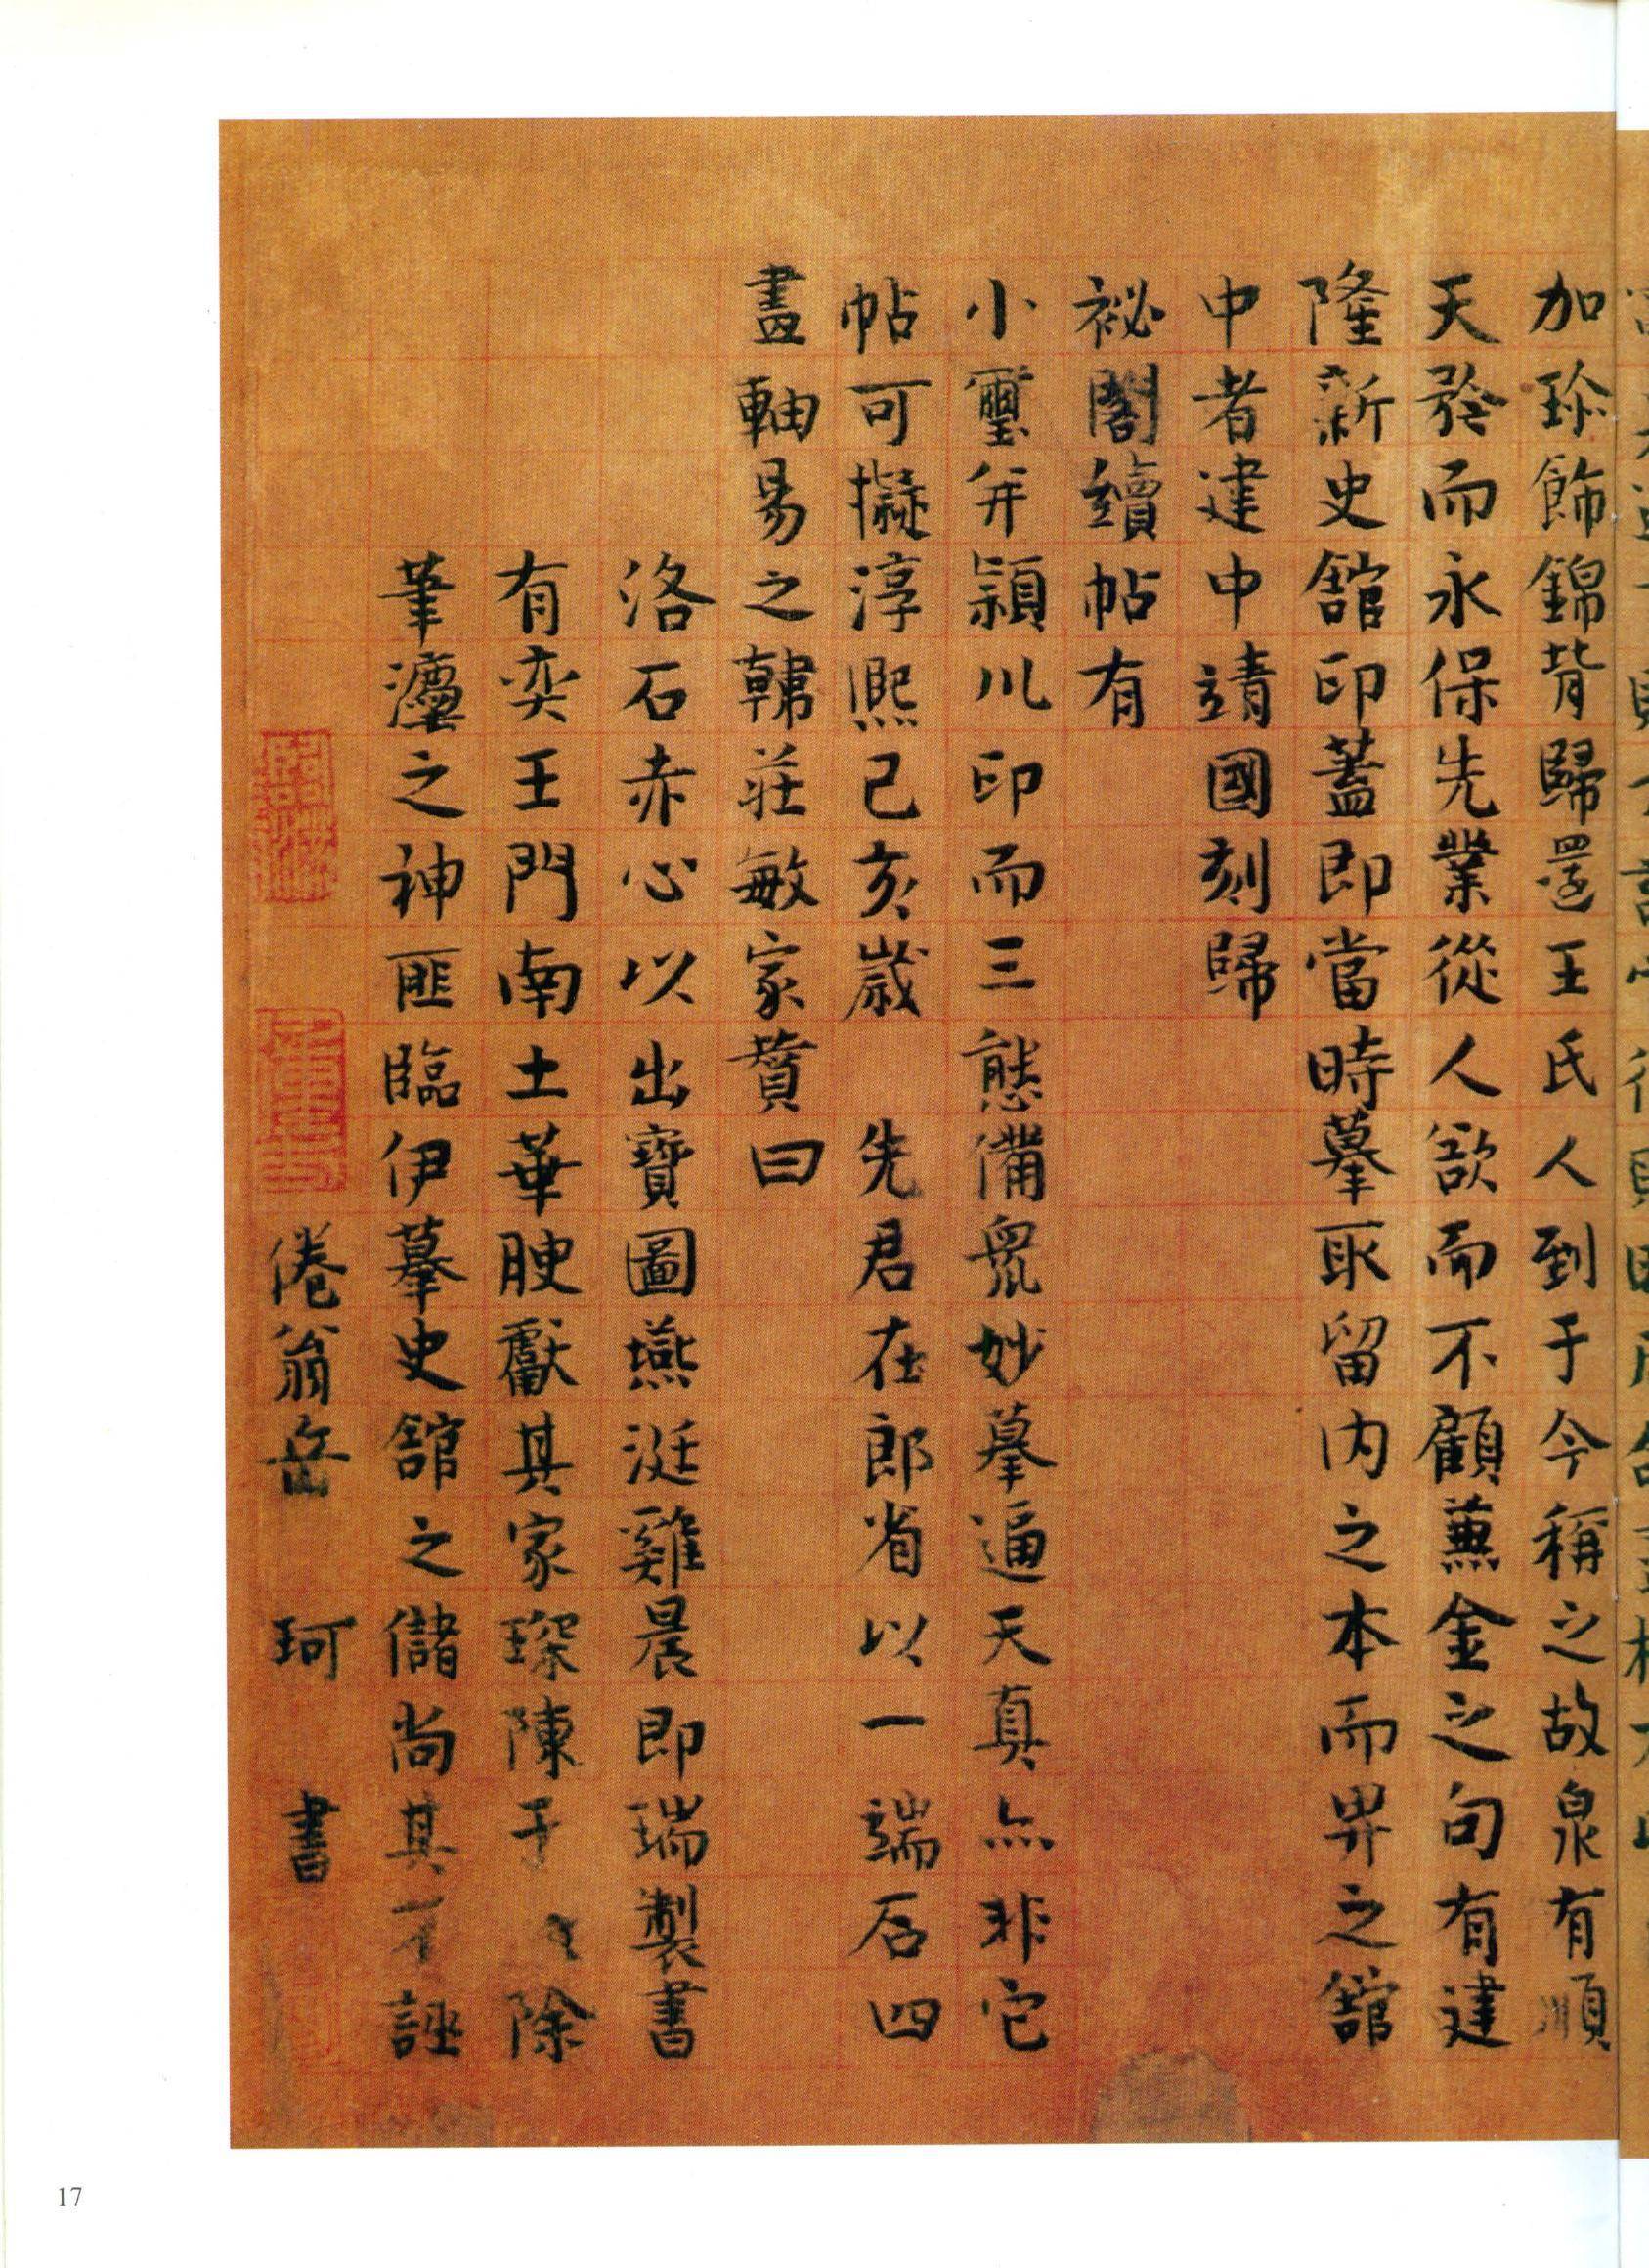 加珎飾錦背歸還王氏人到于今稱之故泉有順
天癸而永保先業從人欲而不顧兼金之句有建
隆新史舘印蓋即當時摹取留内之本而畀之舘
中者建中靖國刻歸
祕閣續帖有
小璽并潁川印而三態備衆妙摹逼天真亦非它
帖可擬淳熙己亥歲 先君在郎省以一端石四
畫軸易之韓莊敏家贊曰
洛石赤心以出寶圖燕涎雞晨即瑞製書
有奕王門南土華腴獻其家琛陳予 除
筆灋之神匪臨伊摹史舘之儲尚其不誣
倦翁岳 珂 書
17